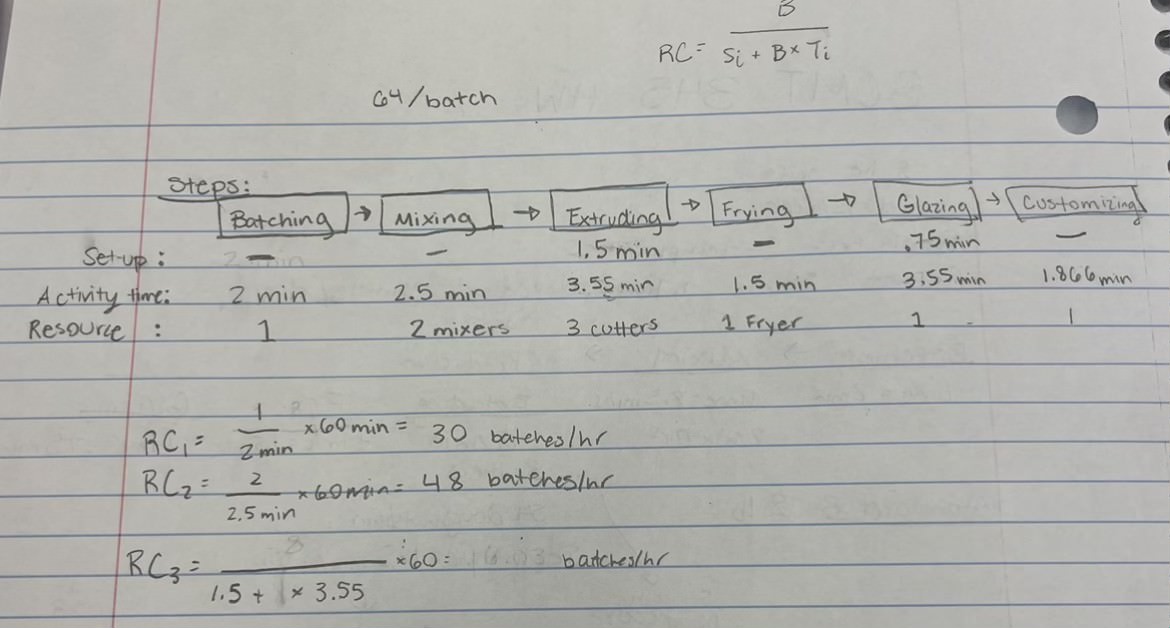 B
RC = Si + B × Ti
64/batch
Steps:
Batching → Mixing → Extruding → Frying → Glazing → Customizing
Set-up : – – 1.5 min – .75min –
Activity time: 2 min 2.5 min 3.55 min 1.5 min 3.55 min 1.866 min
Resource : 1 2 mixers 3 cutters 1 Fryer 1 1
1
RC₁ = 2min ×60 min = 30 batches/hr
2
RC₂ = 2.5 min ×60min = 48 batches/hr
8
RC₃ = 1.5 + 1 × 3.55 ×60 = batches/hr